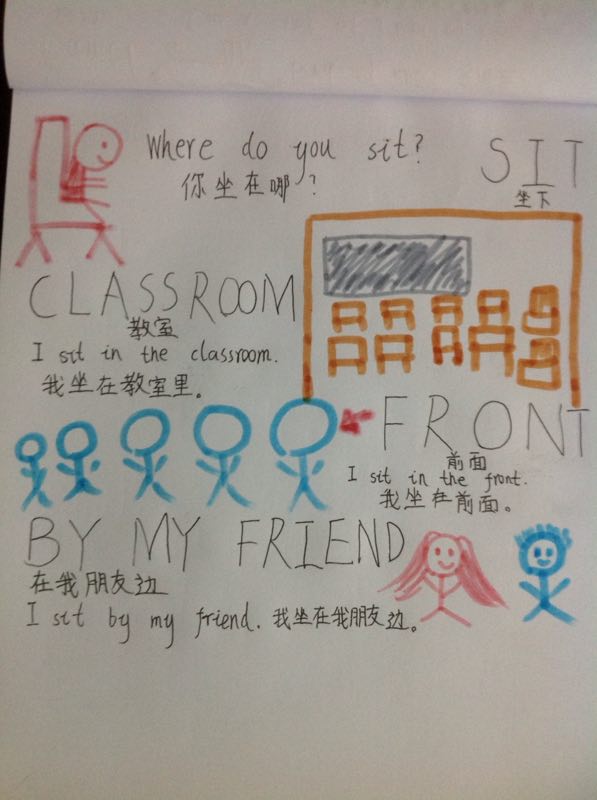 Where do you sit?
你坐在哪？
SIT
坐下
CLASSROOM
教室
I sit in the classroom.
我坐在教室里。
FRONT
前面
I sit in the front.
我坐在前面。
BY MY FRIEND
在我朋友边
I sit by my friend. 我坐在我朋友边。